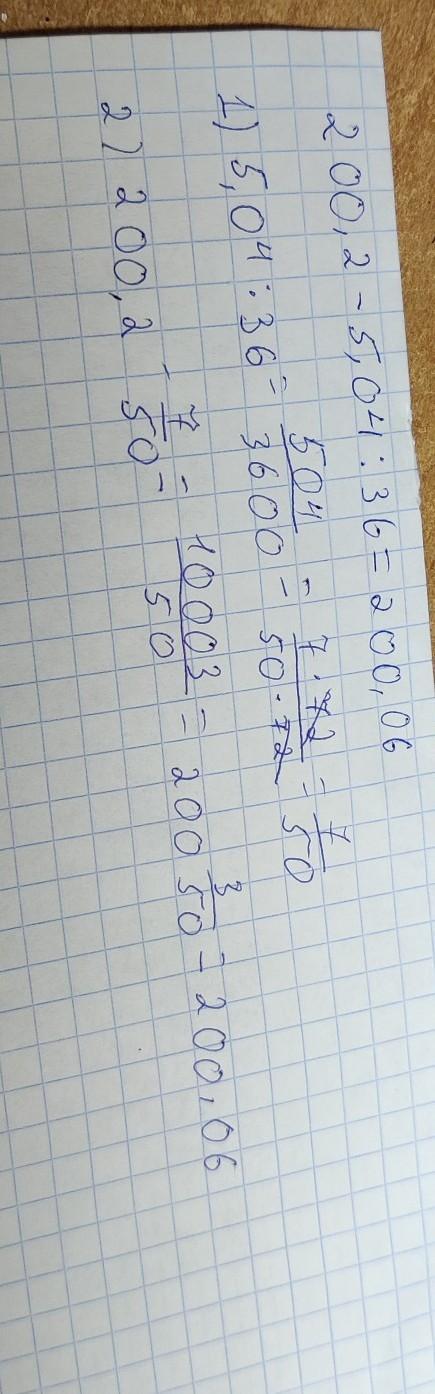 200,2 - 5,04 : 36 = 200,06
1) 5,04 : 36 = 504/3600 = 7·72/50·72 = 7/50
2) 200,2 - 7/50 = 10003/50 = 200 3/50 = 200,06